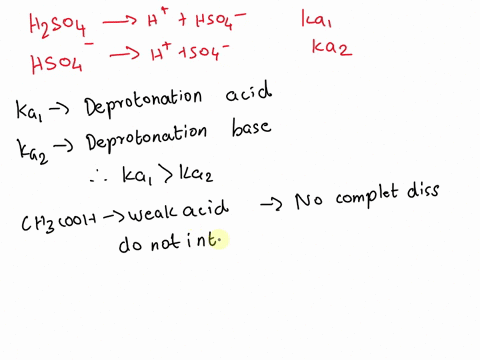 H₂SO₄ → H⁺ + HSO₄⁻ ka₁
HSO₄⁻ → H⁺ + SO₄⁻ ka₂
ka₁ → Deprotonation acid
ka₂ → Deprotonation base
∴ ka₁ > ka₂
CH₃COOH → weak acid → No complet diss
do not int